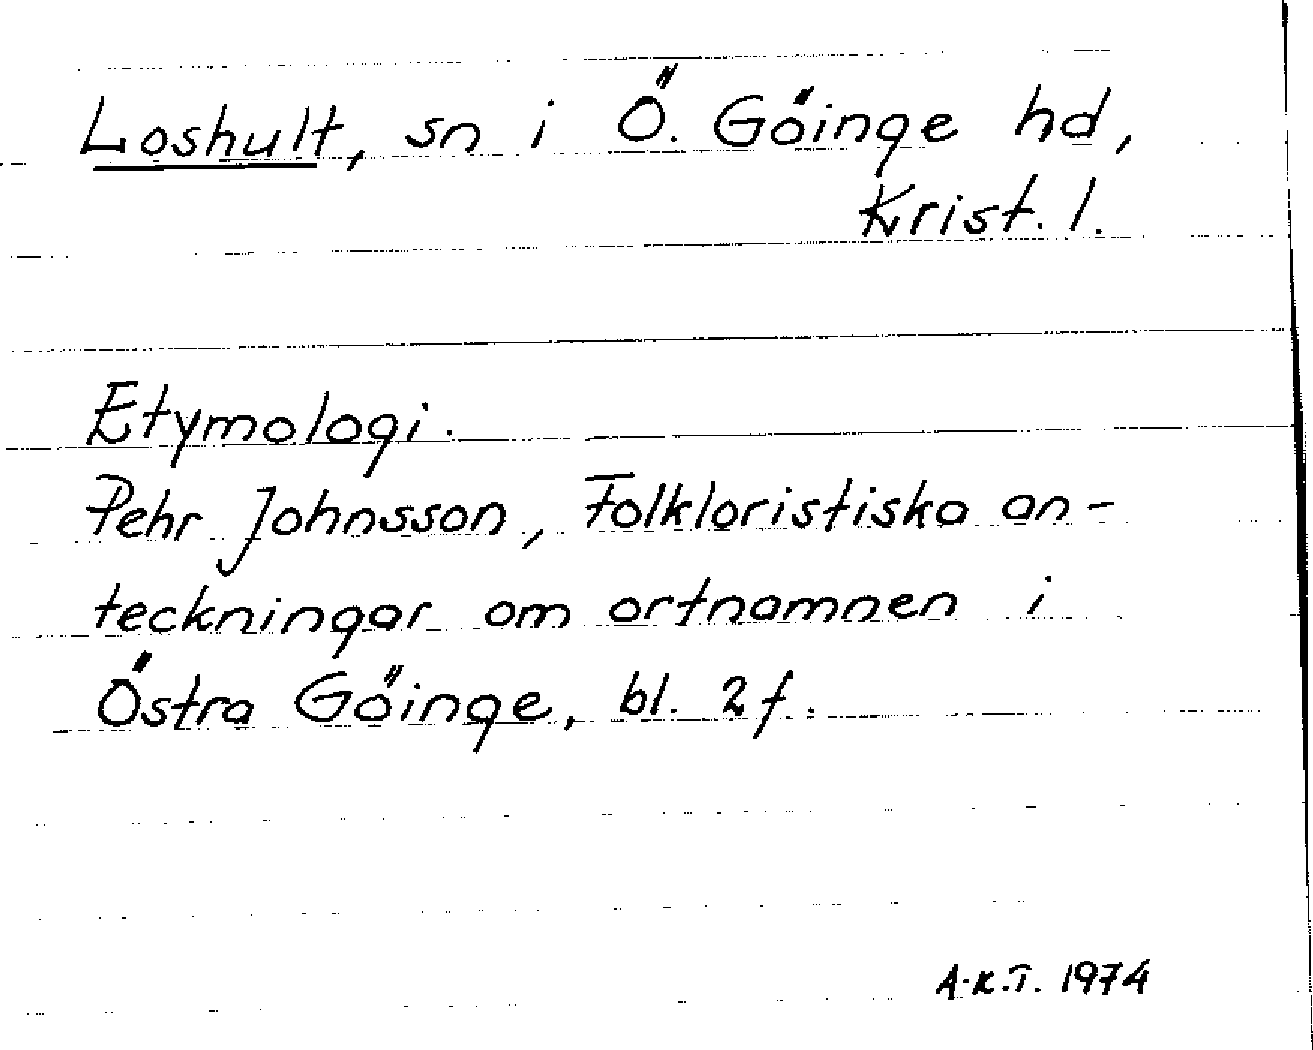 Loshult, sn i Ö. Göinge hd,
Krist. l.
Etymologi.
Pehr Johnsson, Folkloristiska an-
teckningar om ortnamnen i
Östra Göinge, bl. 2 f.
A-K.T. 1974